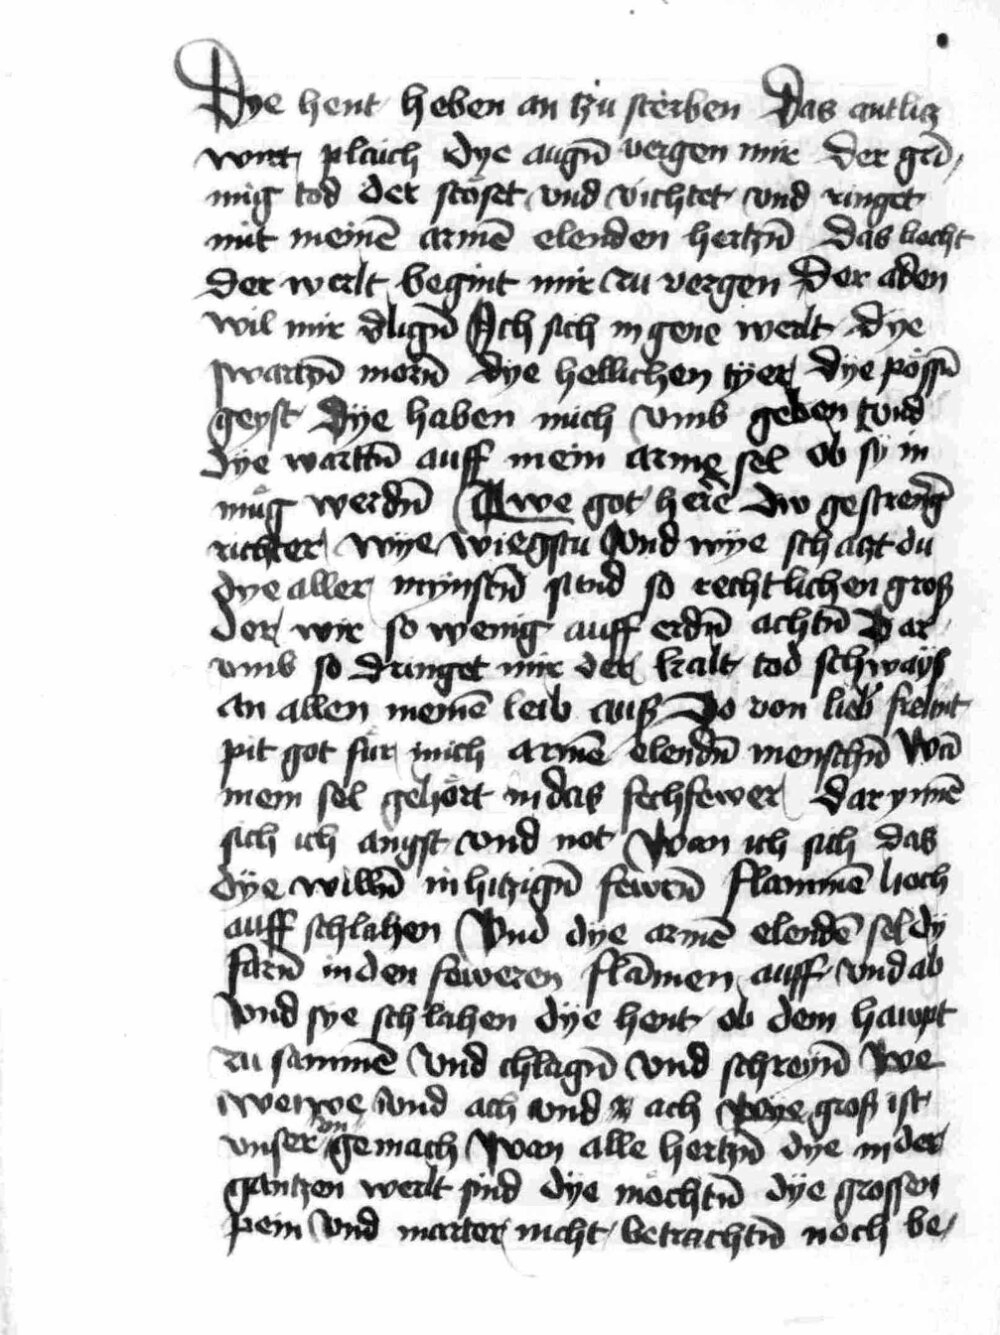 Dye hent heben an tzu sterben Das antlitz
wirt plaich dye augñ vergen mir Der grī,
mig tod der stöset vnd vichtet vnd ringet
mit meinē armē elenden hertzñ Das liecht
der werlt begint mir zu vergen Der aden
wil mir Ach sich in gene werlt dye
swartzñ morñ dye hellichen tÿer Dÿe pössñ
geyst Dÿe haben mich vmb geben vnd
dye warttñ auff mein arme sel ob sÿ in
müg werdñ Awe got herē dw gestrengē
richter wÿe wiegstu vnd wÿe schatzt du
dye aller mynstñ sund so rechtlichen groß
der wir so wenig auff erdñ achtñ Dar
vmb so dringet mir der kalt tod schwayß
an allen meinē leib auß Do von lieb frewnt
pit got für mich armē elendñ menschñ Wā
mein sel gehört in das fechfewer Dar ynnē
sich ich angst vnd not Wan ich sich das
dÿe willñ in hitzigñ fewrñ flammē hoch
auff schlahen Vnd dye armē elendē sel dÿ
farñ in den feweren flāmen auff vnd ab
Vnd sye schlahen dÿe hent ob dem haupt
zu sammē Vnd chlagñ Vnd schreyñ We
we we vnd ach vnd ach Wye groß ist
vnser vngemach Wan alle hertzñ dye in der
gantzen werlt sind dÿe möchtñ dÿe grossen
pein Vnd marter nicht betrachtñ noch be/